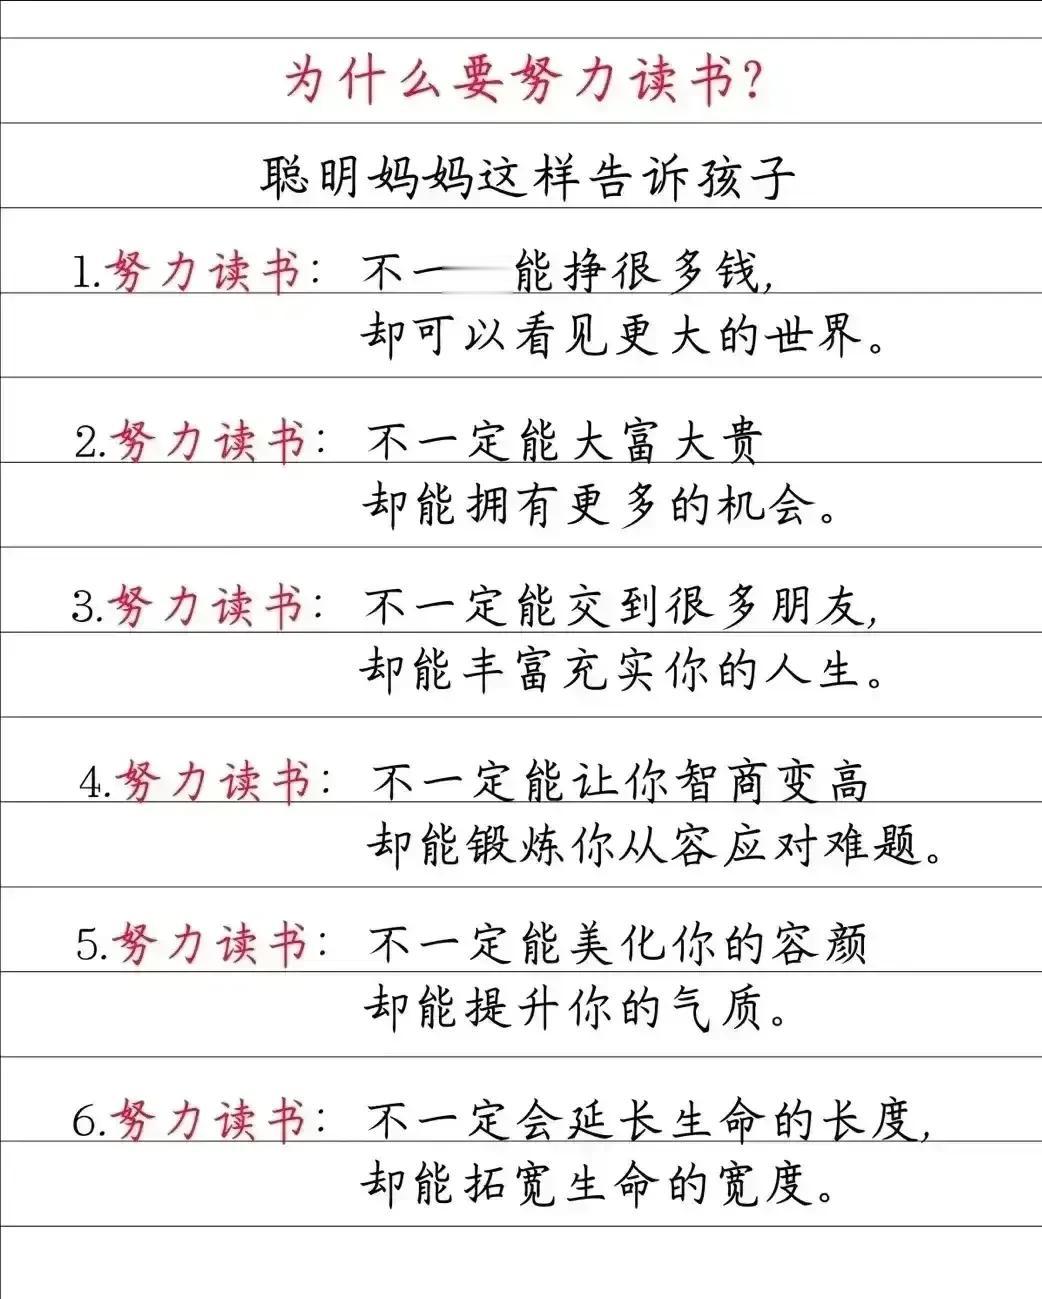 为什么要努力读书?
聪明妈妈这样告诉孩子
1.努力读书: 不一 能挣很多钱,
却可以看见更大的世界。
2.努力读书: 不一定能大富大贵
却能拥有更多的机会。
3.努力读书: 不一定能交到很多朋友,
却能丰富充实你的人生。
4.努力读书: 不一定能让你智商变高
却能锻炼你从容应对难题。
5.努力读书: 不一定能美化你的容颜
却能提升你的气质。
6.努力读书: 不一定会延长生命的长度,
却能拓宽生命的宽度。